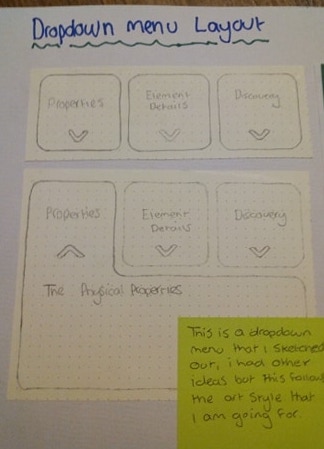 Dropdown menu Layout
Properties
Element
Details
Discovery
Properties
Element
Details
Discovery
The Physical Properties
This is a dropdown
menu that I sketched
out, i had other
ideas but this follows
the art style that
I am going for.